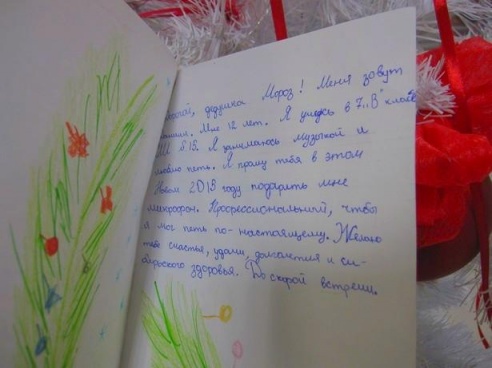 дедушка Мороз! Меня зовут
Мне 12 лет. Я учусь в 7 „В" классе
15. Я занимаюсь музыкой и
люблю петь. Я прошу тебя в этом
Новом 2018 году подарить мне
микрофон. Профессиональный, чтобы
я мог петь по-настоящему. Желаю
тебе счастья, удачи, долголетия и си-
бирского здоровья. До скорой встречи,